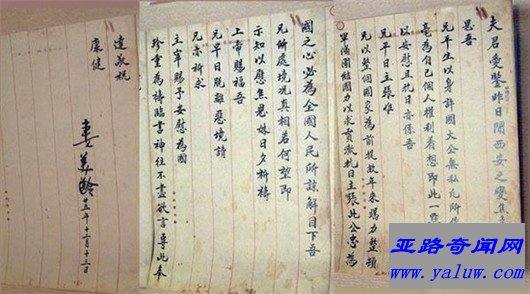 夫君愛鑒昨日聞西安之變焦急
思吾
兄平生以身許國大公無私凡所作
毫為自己個人權利着想即此一點
以安慰且抗日亦係吾
兄平日主張惟
兄以整個國家為前提故年來竭力整頓
軍備團結國力以求貫徹抗日主張此公忠為
國之心必為全國人民所諒解目下吾
兄所處境況真相若何望即
示知以慰焦思妹日夕祈禱
上帝賜福吾
兄早日脫離惡境請
兄亦祈求
主宰賜予安慰為國
珍重為禱臨書神往不盡欲言專此奉
達敬祝
康健
妻美齡
廿五年十二月十三日
亚路奇闻网
www.yaluw.com